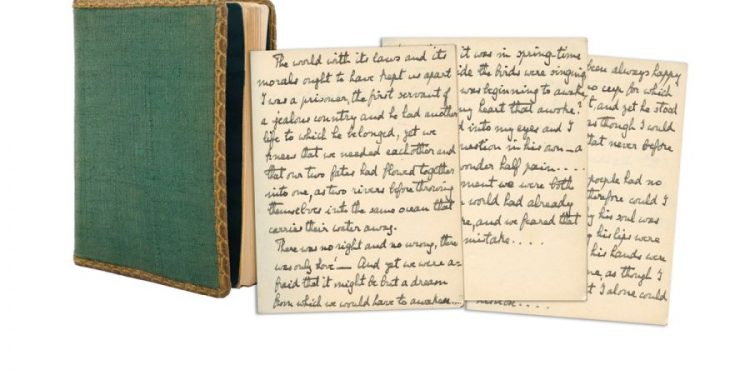 The world with its laws and its
morals ought to have kept us apart
I was a prisoner, the first servant of
a jealous country and he had another
life to which he belonged, yet we
knew that we needed eachother and
that our two fates had flowed together
into one, as two rivers before throwing
themselves into the same ocean that
carries their water away.
There was no right and no wrong, there
was only love! — And yet we were a-
fraid that it might be but a dream
from which we would have to awaken...
it was in spring-time
ide the birds were singing
was beginning to awake
my heart that awoke?
d into my eyes and I
uestion in his own — a
onder half pain....
ment we were both
world had already
re, and we feared that
mistake....
been always happy
no for which
t, and yet he stood
as though I would
that never before
people had no
therefore could I
his soul was
his lips were
his hands were
me, as though I
t I alone could